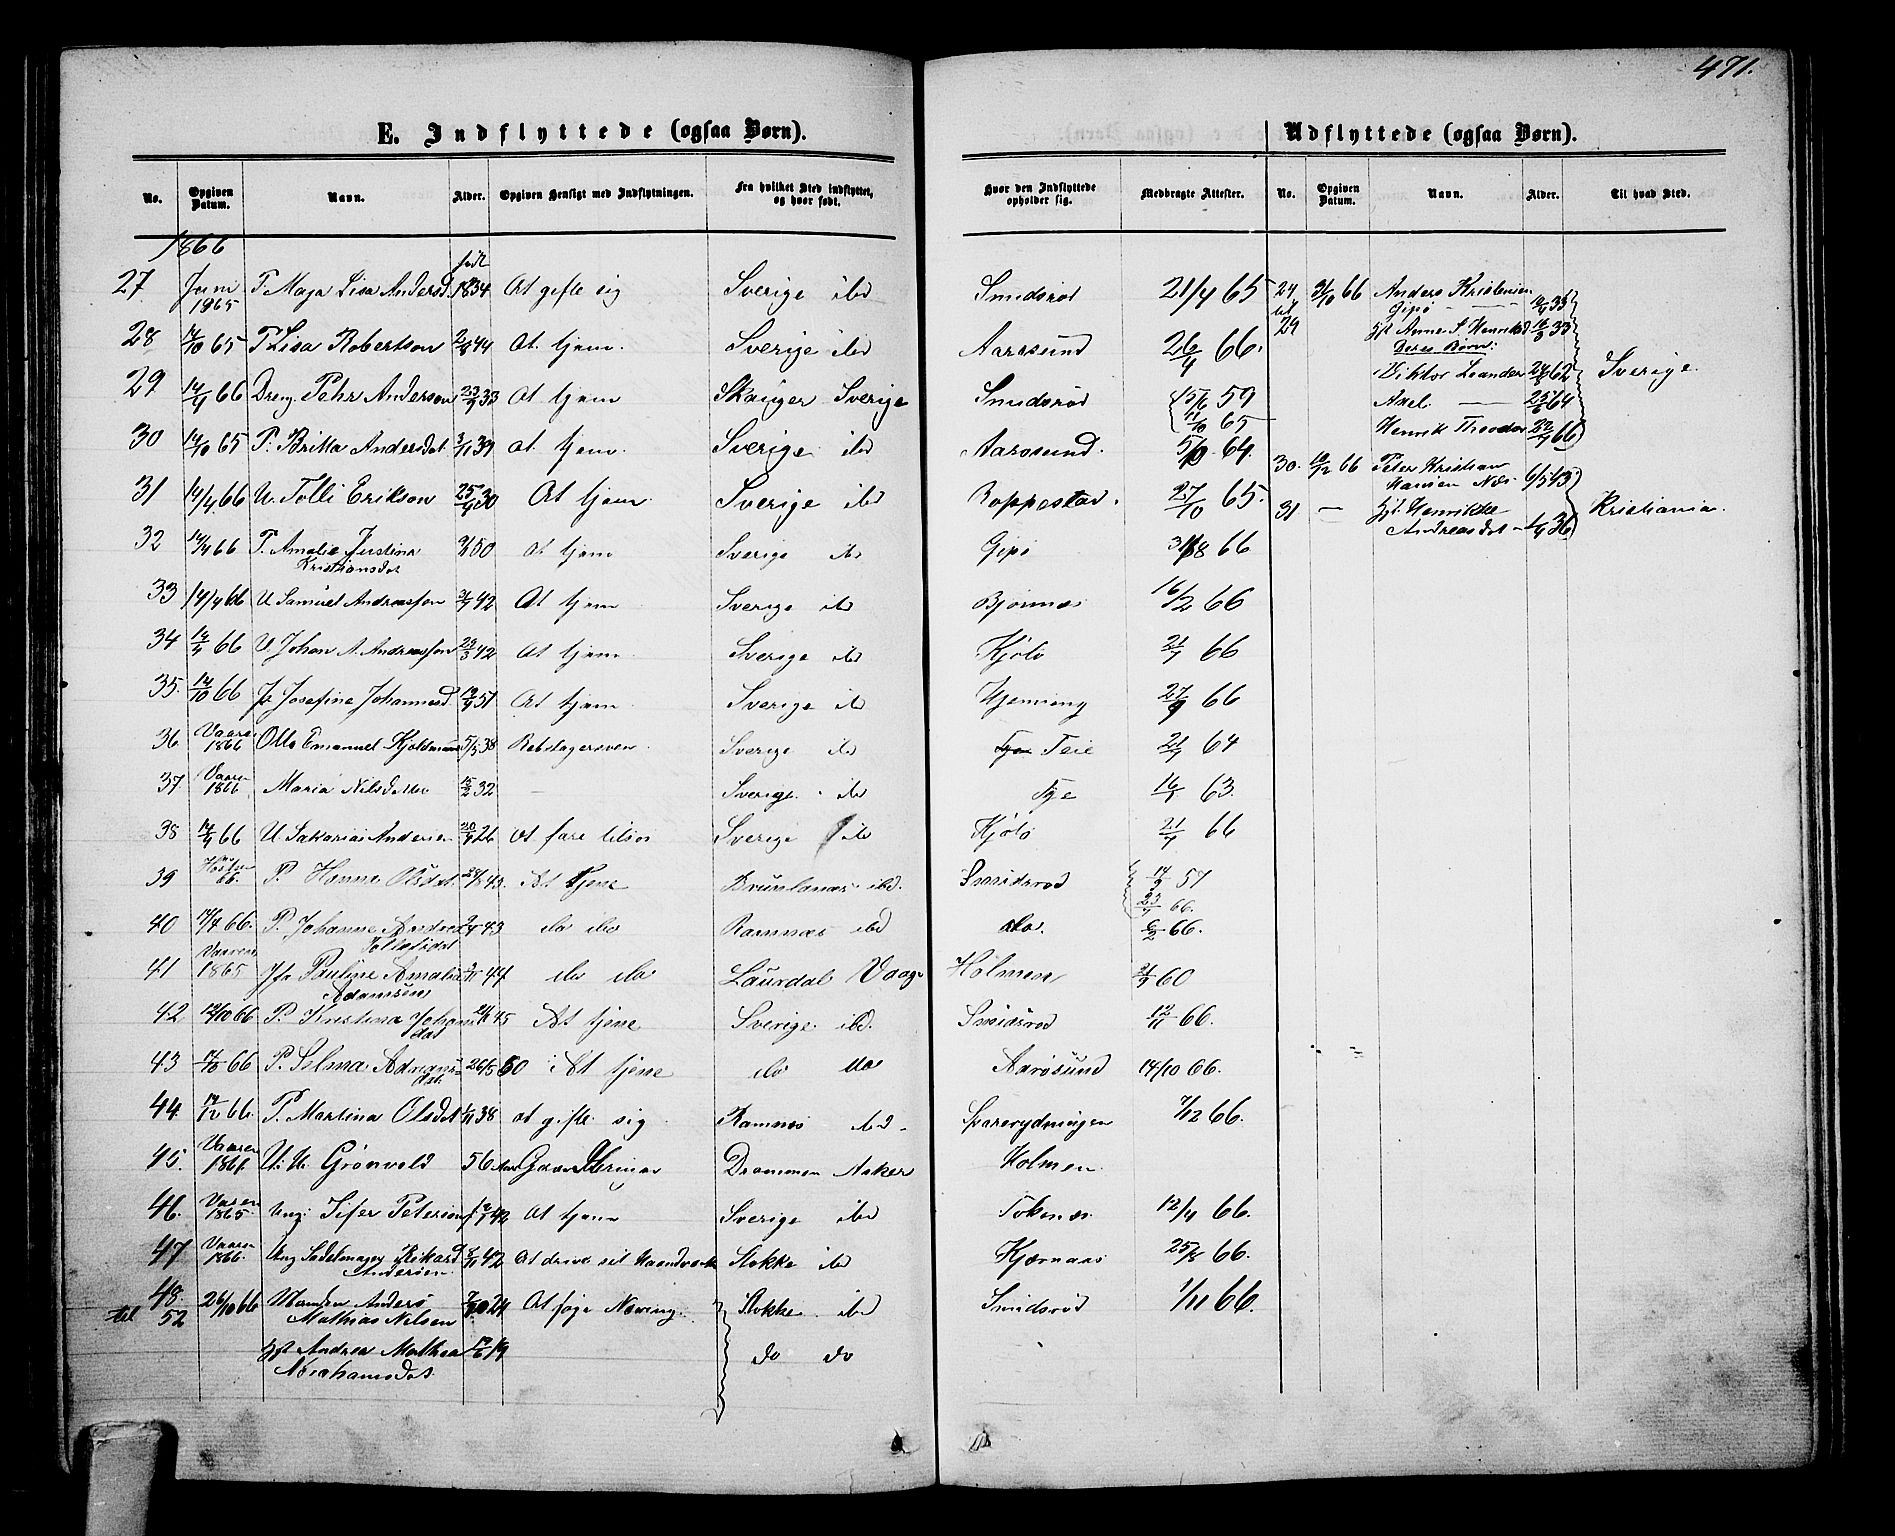 471.
E. Indflyttede (ogsaa Børn).
Udflyttede (ogsaa Børn).
No. Opgiven Datum. Navn. Alder. Opgiven Hensigt med Indflytningen. Fra hvilket Sted indflyttet, og hvor født. Hvor den Indflyttede opholder sig. Medbragte Attester.
No. Opgiven Datum. Navn. Alder. Til hvad Sted.
1866
27 Juni 1865 P. Maja Lisa Andersd. født 1834 At gifte sig Sverige ibd Smidsrød 21/4 65
28 14/10 65 P. Lisa Robertson 44 At tjene Sverige ibd Aarøsund 26/4 66.
29 14/4 66 Dreng Pehr Anderson 23/9 33 At tjene Skauger Sverige Smidsrød 15/6 59
11/10 65
30 14/10 65 P. Britta Andersdat. 3/11 39 At tjene Sverige ibd Aarosund. 5/10 64.
31 14/4 66 U. Tolli Erikson 25/4 30 At tjene Sverige ibd Roppestad. 27/10 65.
32 14/4 66 P. Amalie Justina Kristiansdat 50 At tjene Sverige ibd Gipø 66
33 14/4 66 U. Samuel Andreassen 42 At tjene Sverige ibd Bjørnnes 16/2 66
34 14/4 66 U. Johan A. Andreassen 29/3 42 At tjene Sverige ibd Kjølø 21/4 66
35. 14/10 66 Josefine Johannesd. 51 At tjene Sverige ibd Hjemseng 27/9 66
36 Vaaren 1866 Otto Emanuel 5/3 38 Rebslagersven Sverige ibd Teie 64
37 Vaaren 1866 Maria Nilsdatter 15/2 32 — Sverige ibd Tye 63.
38 14/4 66 U. Sakarias Andersen 20/9 26 At fare tilsøs Sverige ibd Kjølø 21/4 66
39 Høsten 66. P. Hanne Olsdat. 43. At tjene Brunlanes ibd. Smidsrød 57
66.
40 14/4 66. P. Johanne Andrea Tollefsdat 43 do do Ramnæs ibd do. 6/2 66.
41 Vaaren 1865 Jfr Pauline Amalie Adamsen 44 do do Laurdal Vaage Holmen 60
42 14/10 66 P. Kristina Johansdat 45 At tjene Sverige ibd. Smidsrød 12/11 66.
43 66 P. Selma Adriansdat. 26/5 50 At tjene do do Aarøsund 14/10 66.
44 14/12 66. P. Martina Olsdat 38 at gifte sig Ramnes ibd. Sparerydningen 7/12 66.
45. Vaaren U. Grønvold 56 Aar Drammen Asker Holmen.
46. Vaaren 1865. Ung. Petersen 42 At tjene Sverige ibd Tokenes 12/4 66.
47 Vaaren 1866. Ung Sadelmager Rikard Andersen 42 At drive sit Haandværk Stokke ibd Kjærnaas 25/8 66.
48. til 52 24/10 66 Anders Mathias Nilsen 24 At søge Næring. Stokke ibd Smidsrød 1/11 66.
Hst Andrea Mathea Abrahamsdat. 19 do do
24 til 29 31/10 66 Anders Kristensen Gipø 35
Hst Anne S. Henriksd 33
Deres Børn:
Viktor Leander 62
Axel — 64
Henrik Theodor 66
Sverige.
30. 66 Peter Kristian Hansen Næs 43
31 — Hst. Henrikke Andreasdat 36
Kristiania.